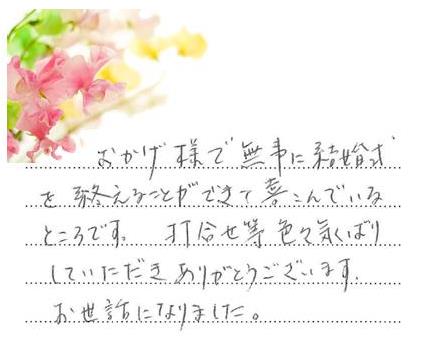 おかげ様で無事に結婚式
を終えることができて喜こんでいる
ところです。 打合せ等色々気くばり
していただきありがとうございます.
お世話になりました。